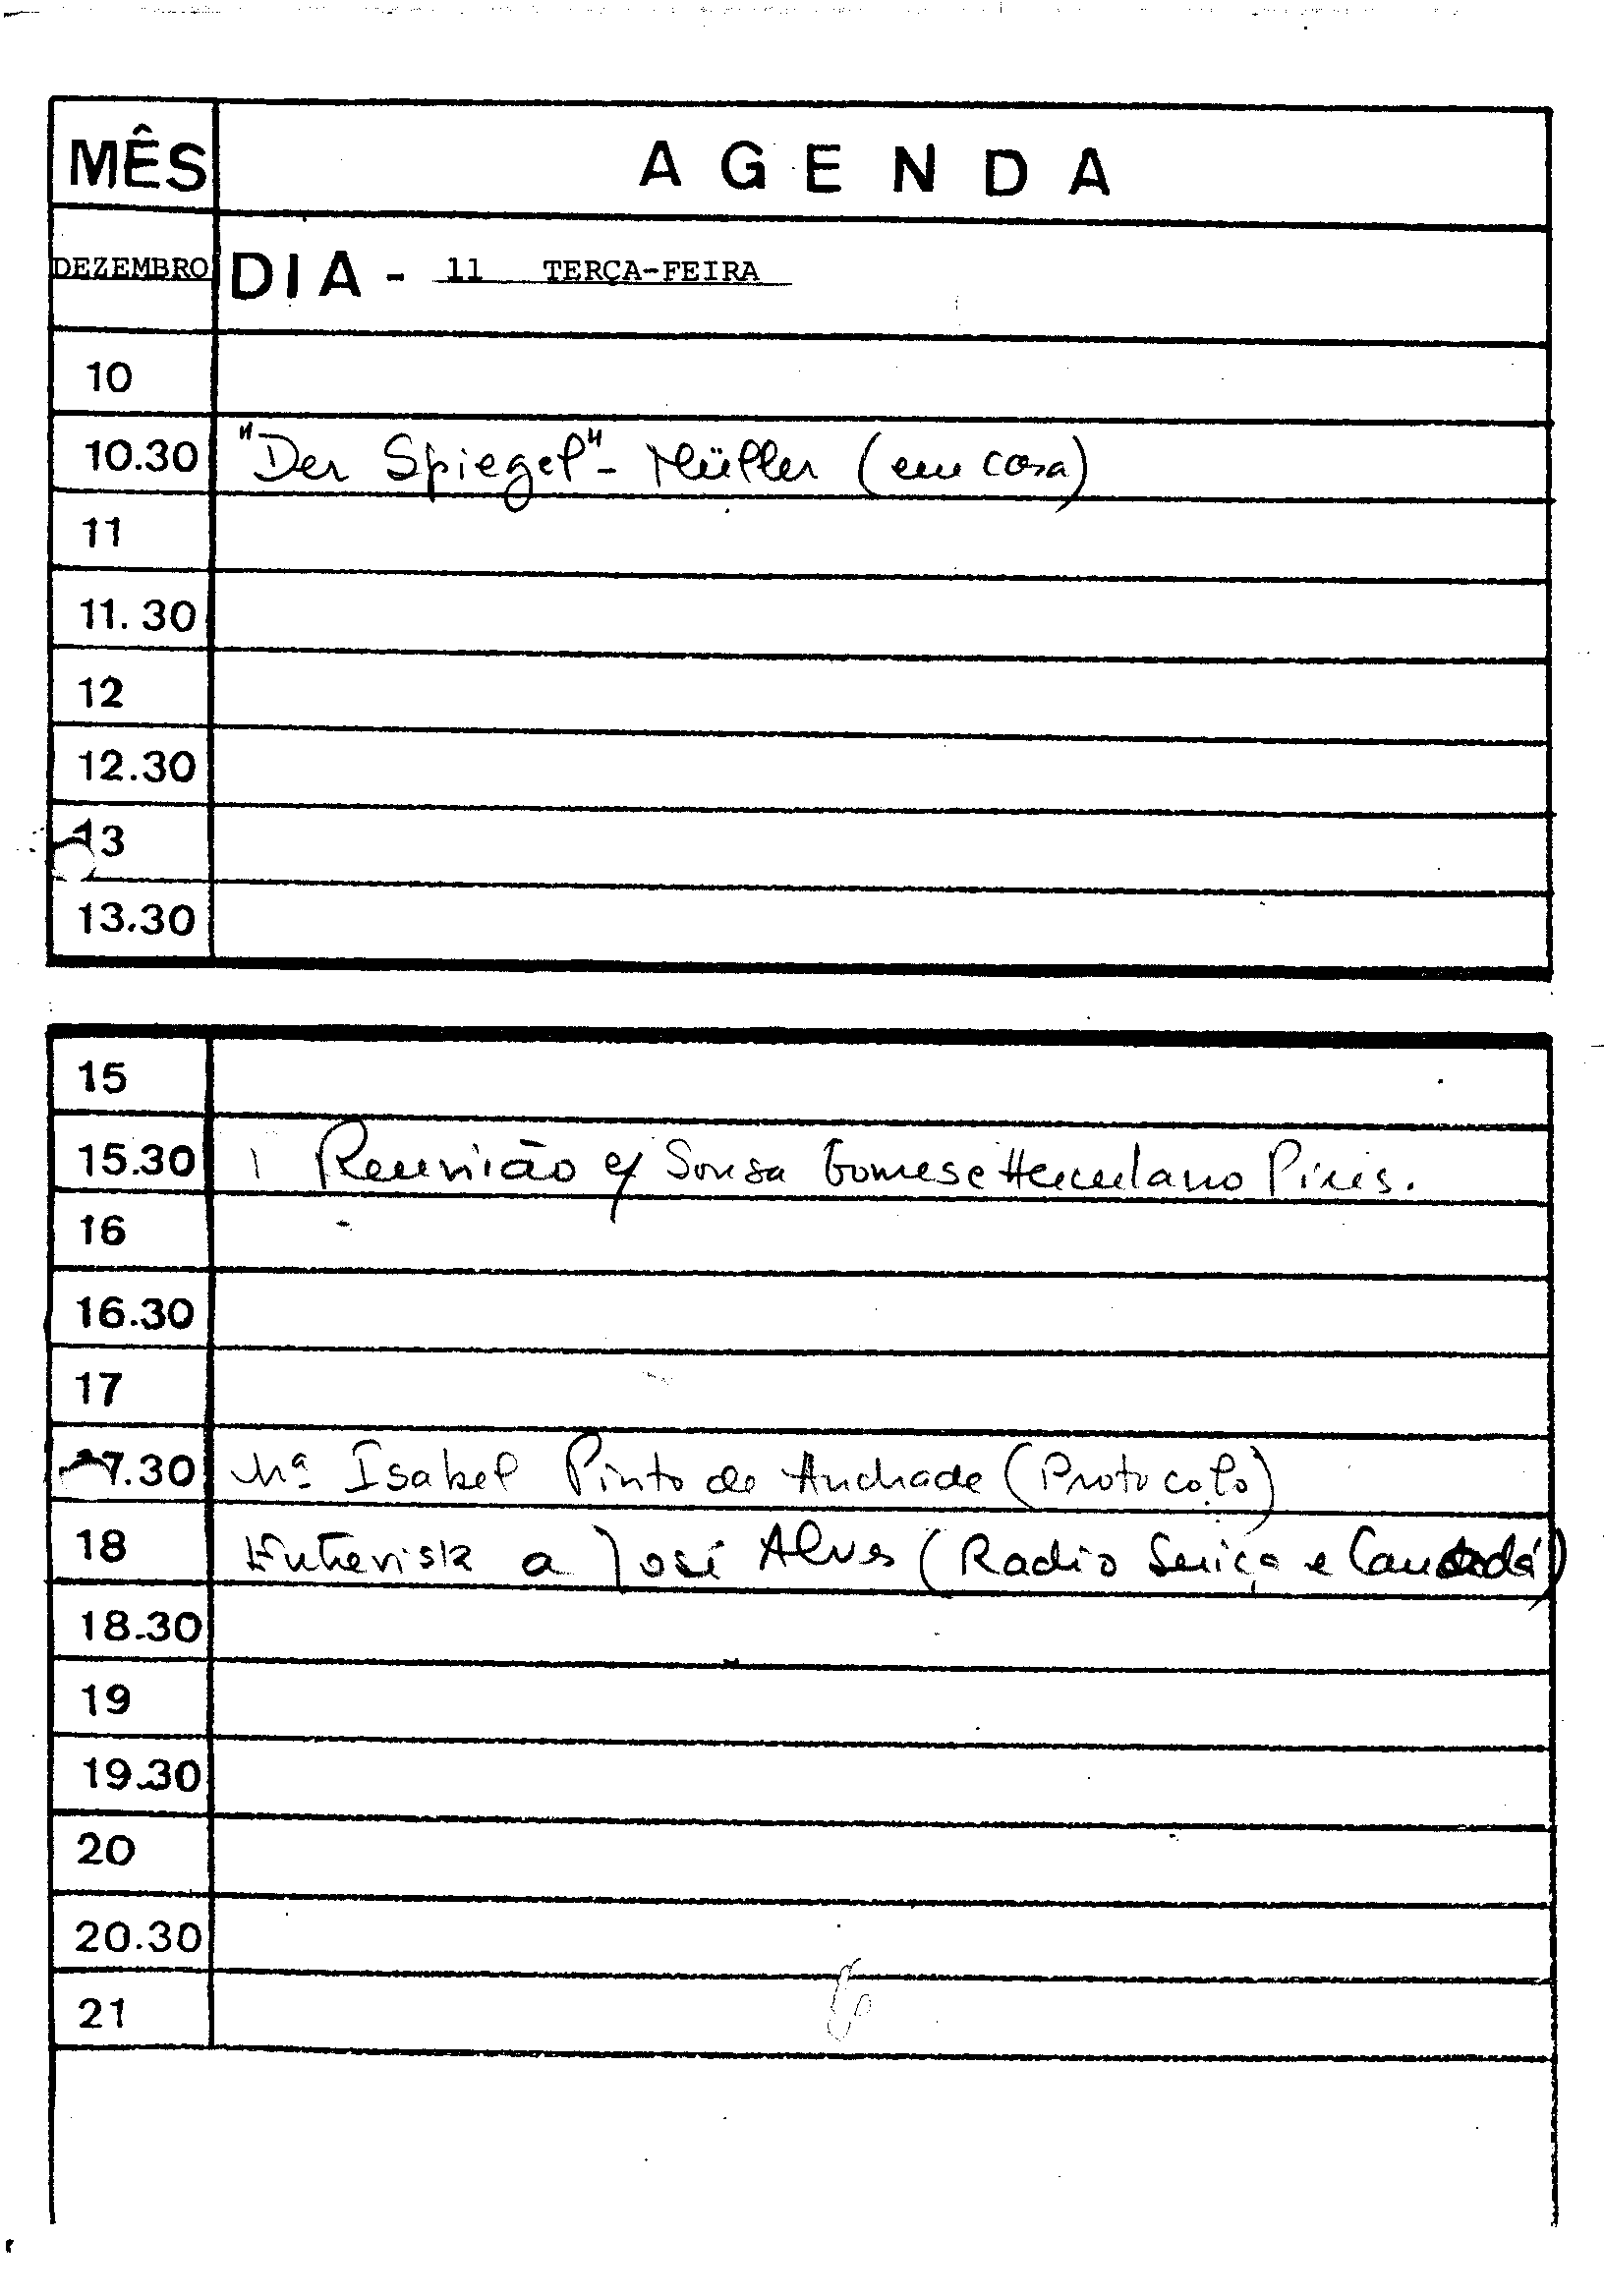 MÊS AGENDA
DEZEMBRO DIA - 11 TERÇA-FEIRA
10
10.30 "Der Spiegel" - Müller (em casa)
11
11.30
12
12.30
13
13.30
15
15.30 Reunião c/ Sousa Gomes e Herculano Pires.
16
16.30
17
17.30 Mª Isabel Pinto de Andrade (Protocolo)
18 Entrevista a José Alves (Radio Suiça e Canadá)
18.30
19
19.30
20
20.30
21